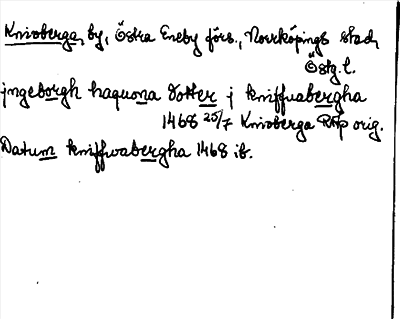 Knivberga, by, Östra Eneby förs., Norrköpings stad,
Östg. l.
jngeborgh haquona dotter j kniffuabergha
1468 25/7 Knivberga RAp orig.
Datum kniffwabergha 1468 ib.